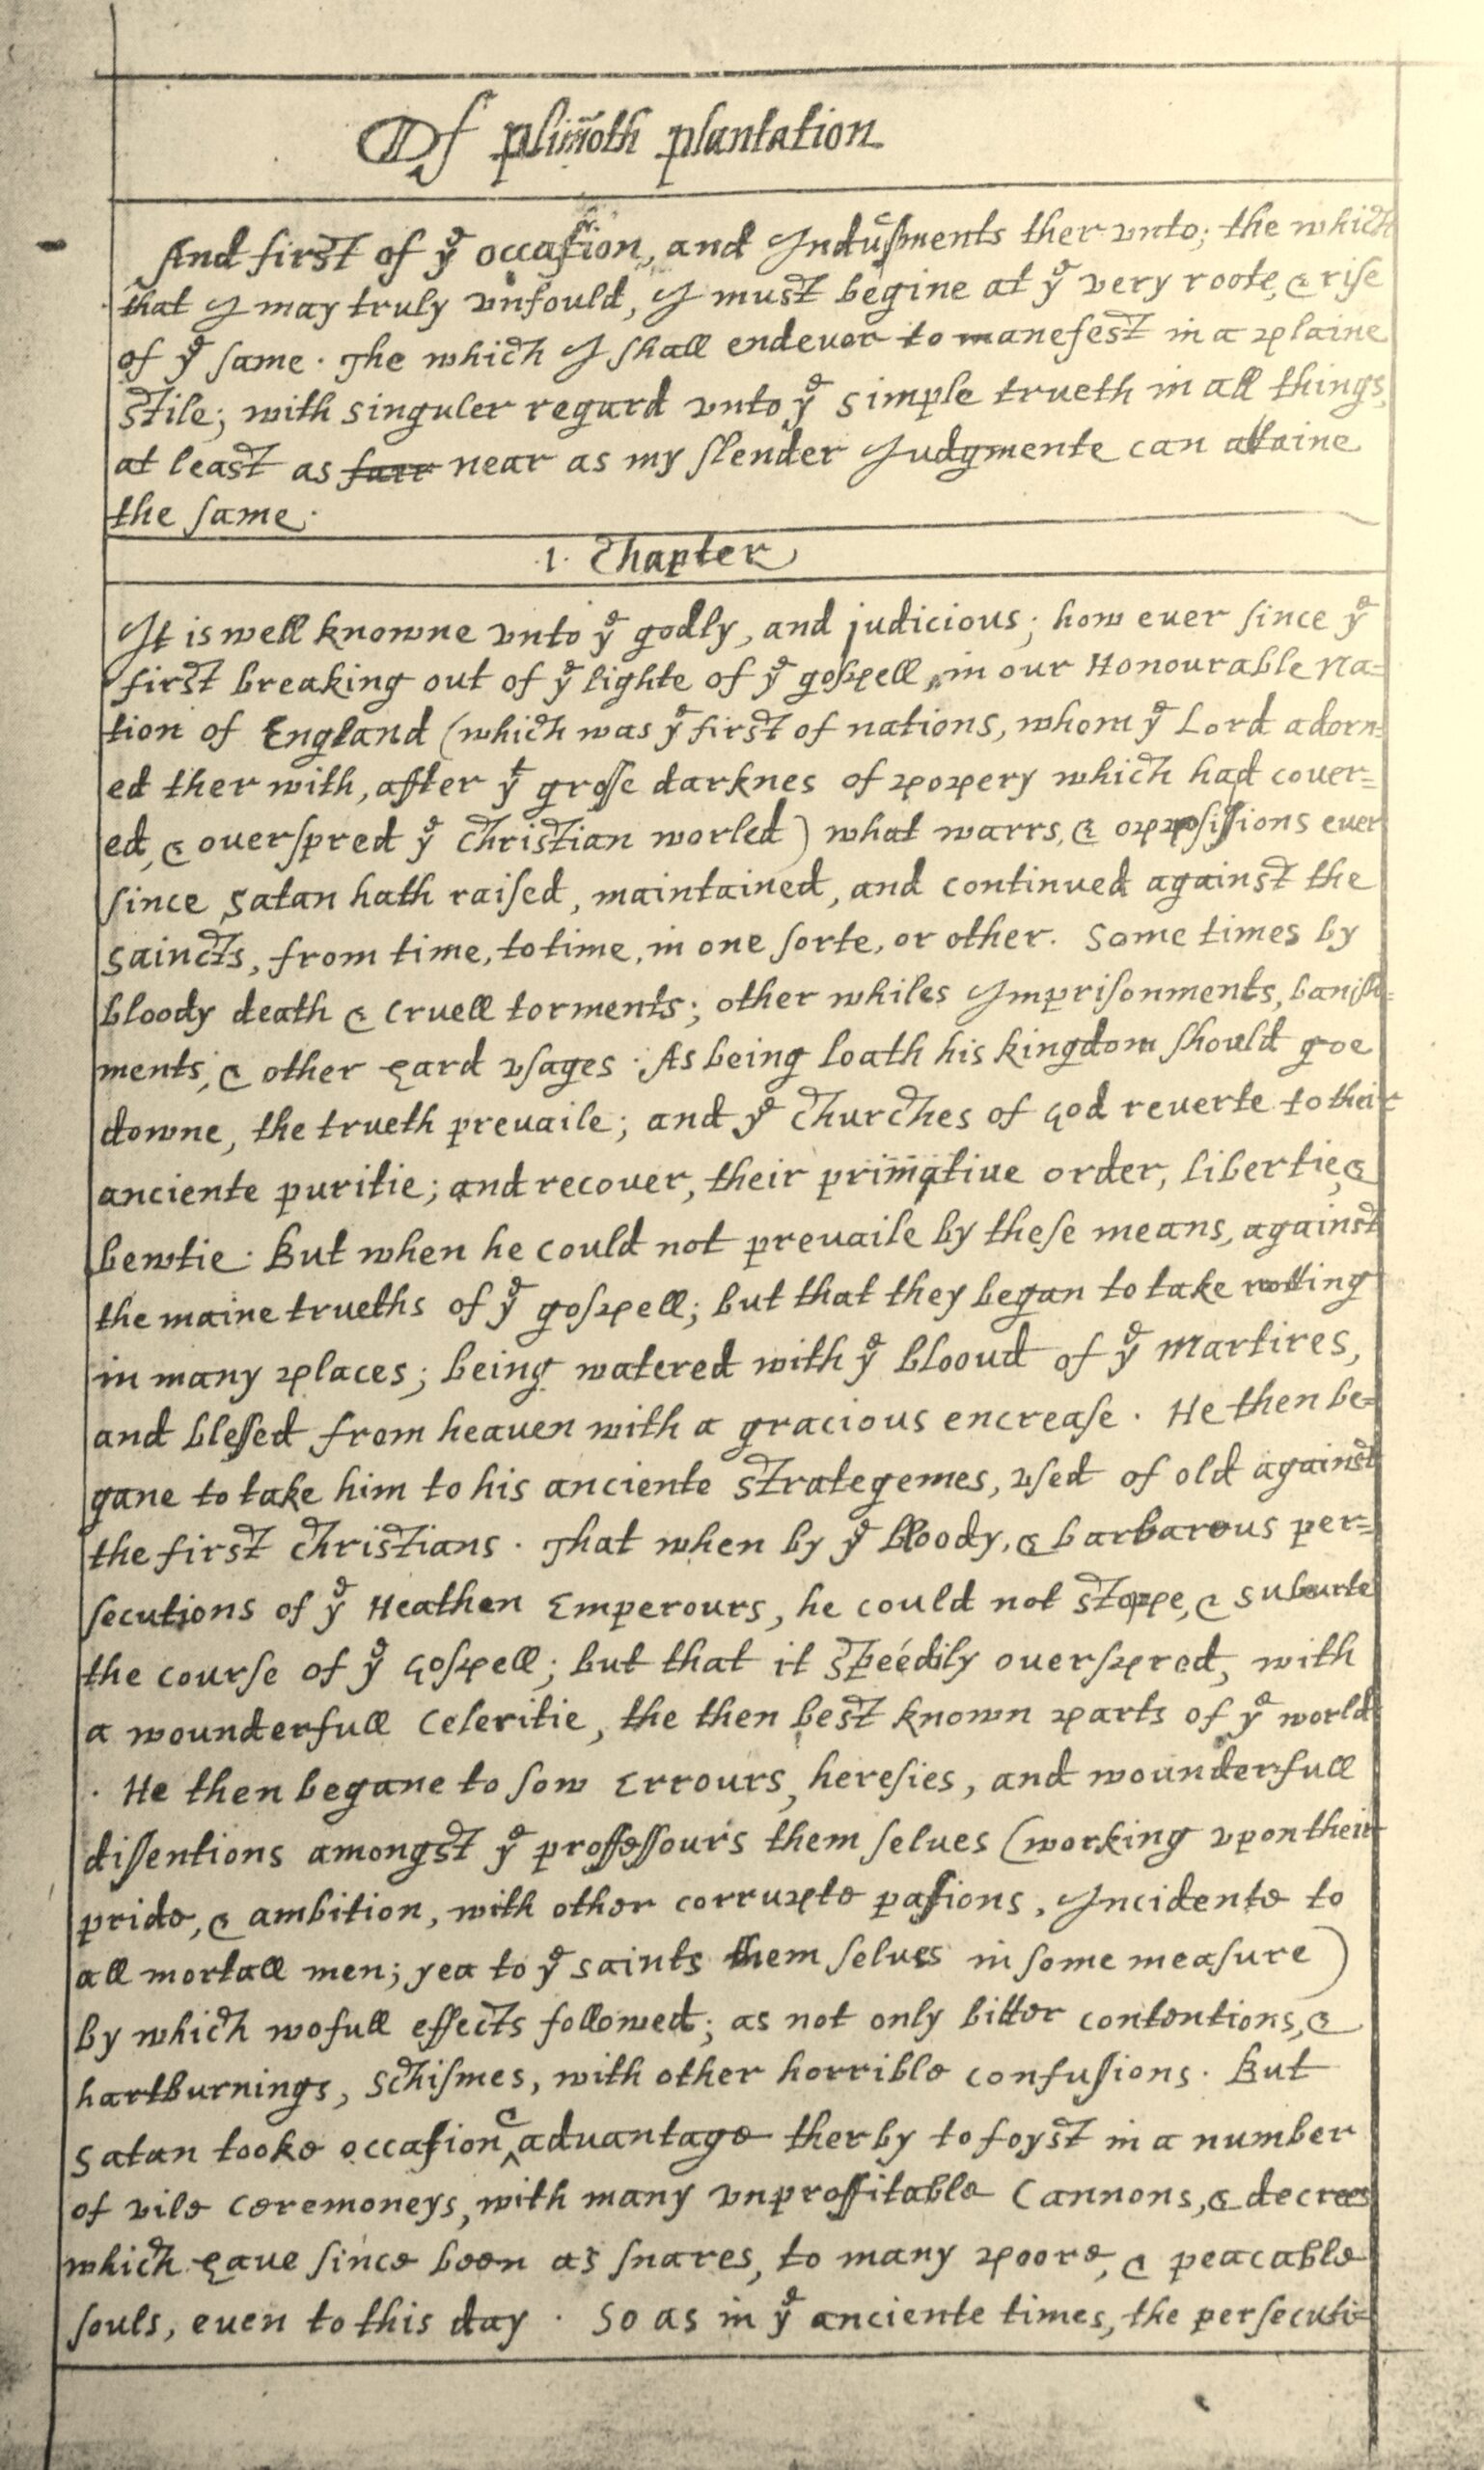 Of plim̃oth plantation
And first of yᵉ occasion, and Indusments ther vnto; the which
that I may truly vnfould, I must begine at yᵉ very roote, & rise
of yᵉ same. The which I shall endevor to manefest in a plaine
stile; with singuler regard vnto yᵉ simple trueth in all things,
at least as ~~farr~~ near as my slender Judgmente can attaine
the same.
.1. Chapter
It is well knowne vnto yᵉ godly, and judicious; how euer since yᵉ
first breaking out of yᵉ lighte of yᵉ gospell, in our Honourable Na=
tion of England (which was yᵉ first of nations, whom yᵉ Lord adorn=
ed ther with, after yᵗ grosse darknes of popery which had couer=
ed, & ouerspred yᵉ christian worled) what warrs, & oppossisions euer
since satan hath raised, maintained, and continued against the
saincts, from time, to time, in one sorte, or other. Some times by
bloody death & cruell torments; other whiles Imprisonments, banish=
ments, & other hard vsages. As being loath his kingdom should goe
downe, the trueth preuaile; and yᵉ churches of God reuerte to their
anciente puritie; and recouer, their prim̃atiue order, libertie, &
bewtie. But when he could not preuaile by these means, against
the maine trueths of yᵉ gospell; but that they began to take rotting
in many places; being watered with yᵉ bloud of yᵉ martires,
and blessed from heauen with a gracious encrease. He then be=
gane to take him to his anciente strategemes, vsed of old against
the first christians. That when by yᵉ bloody, & barbarous per=
secutions of yᵉ Heathen Emperours, he could not stoppe, & subuerte
the course of yᵉ gospell; but that it speedily ouerspred, with
a wounderfull celeritie, the then best known parts of yᵉ world
. He then begane to sow Errours, heresies, and wounderfull
dissentions amongst yᵉ proffessours them selues (working vpon their
pride, & ambition, with other corrupte passions, Incidente to
all mortall men; yea to yᵉ saints them selues in some measure)
by which wofull effects followed; as not only bitter contentions, &
hartburnings, schismes, with other horrible confusions. But
satan tooke occasion & aduantage therby to foyst in a number
of vile ceremoneys, with many vnproffitable Cannons, & decrees
which haue since been as snares, to many poore, & peacable
souls, even to this day. So as in yᵉ anciente times, the persecuti=